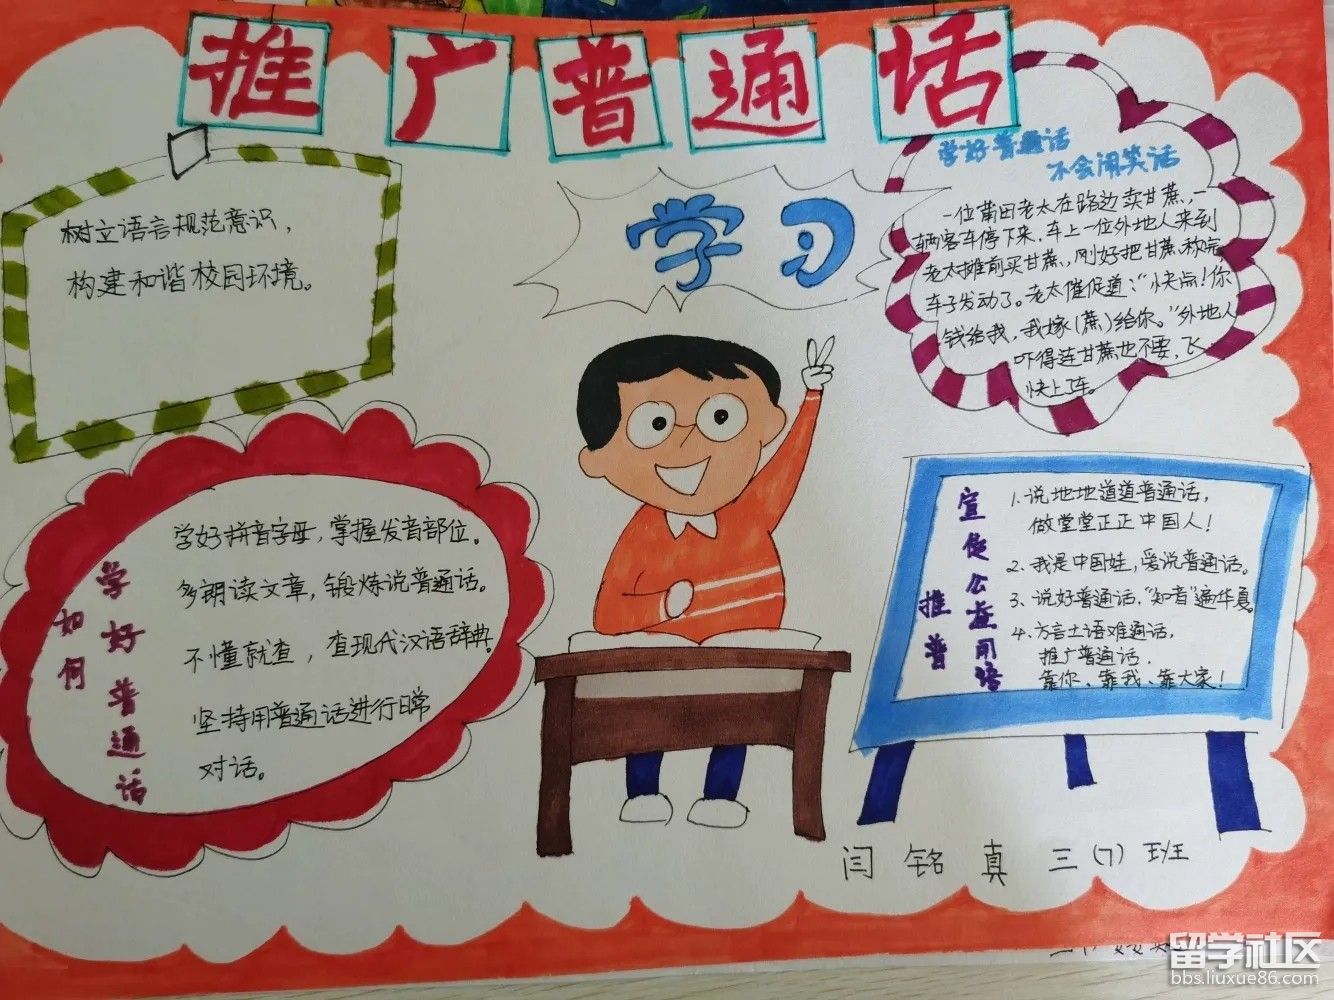 推广普通话
树立语言规范意识，
构建和谐校园环境。
学习
学好普通话
不会闹笑话
一位莆田老太在路边卖甘蔗，一
辆客车停下来，车上一位外地人来到
老太摊前买甘蔗，刚好把甘蔗称完
车子发动了。老太催促道：“快点！你
钱给我，我嫁（蔗）给你。”外地人
吓得连甘蔗也不要，飞
快上了车。
如何
学好普通话
学好拼音字母，掌握发音部位。
多朗读文章，锻炼说普通话。
不懂就查，查现代汉语辞典。
坚持用普通话进行日常
对话。
推普
宣传公益用语
1. 说地地道道普通话，
做堂堂正正中国人！
2. 我是中国娃，爱说普通话。
3. 说好普通话，“知音”遍华夏。
4. 方言土语难通话，
推广普通话，
靠你、靠我、靠大家！
闫铭真 三(7)班
留学社区
bbs.liuxue86.com